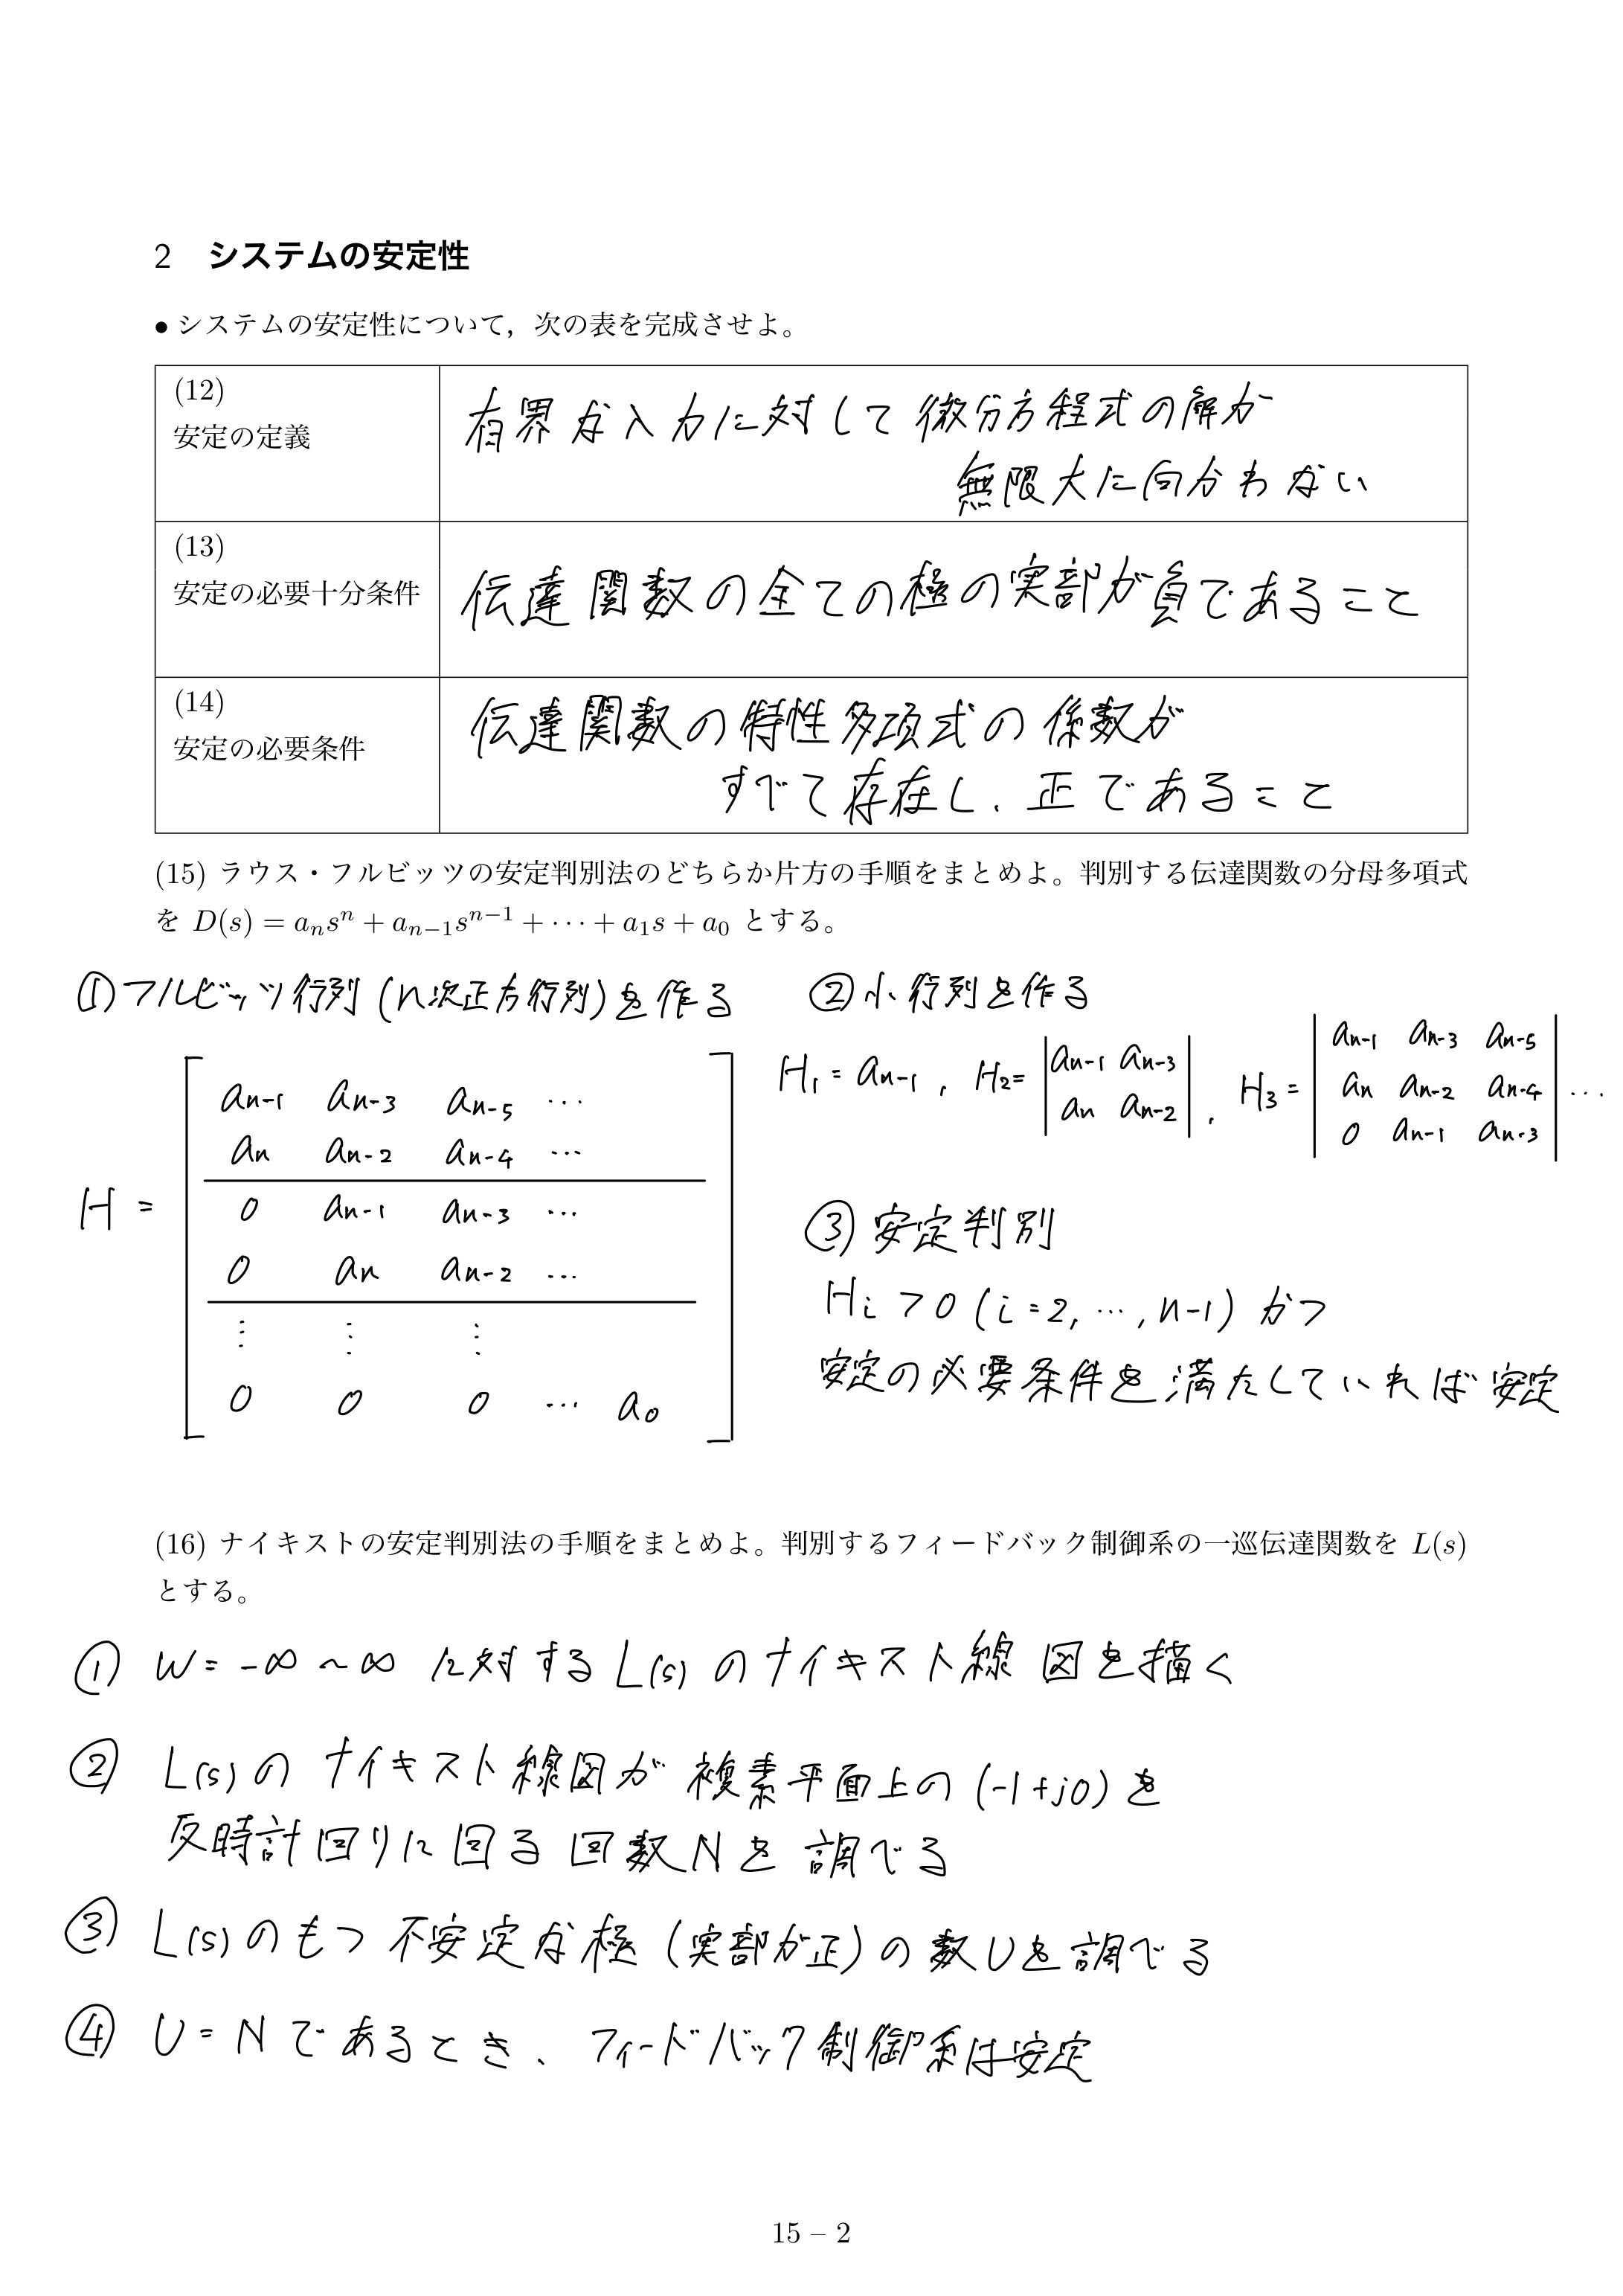 2 システムの安定性
● システムの安定性について，次の表を完成させよ。
(12)
安定の定義
有界な入力に対して微分方程式の解が
無限大に向かわない
(13)
安定の必要十分条件
伝達関数の全ての極の実部が負であること
(14)
安定の必要条件
伝達関数の特性多項式の係数が
すべて存在し、正であること
(15) ラウス・フルビッツの安定判別法のどちらか片方の手順をまとめよ。判別する伝達関数の分母多項式
を D(s) = aₙsⁿ + aₙ₋₁sⁿ⁻¹ + ⋯ + a₁s + a₀ とする。
① フルビッツ行列 (n次正方行列) を作る
H = [
aₙ₋₁ aₙ₋₃ aₙ₋₅ ⋯
aₙ aₙ₋₂ aₙ₋₄ ⋯
0 aₙ₋₁ aₙ₋₃ ⋯
0 aₙ aₙ₋₂ ⋯
⋮ ⋮ ⋮
0 0 0 ⋯ a₀
]
② 小行列を作る
H₁ = aₙ₋₁ , H₂ = |aₙ₋₁ aₙ₋₃
aₙ aₙ₋₂| , H₃ = |aₙ₋₁ aₙ₋₃ aₙ₋₅
aₙ aₙ₋₂ aₙ₋₄
0 aₙ₋₁ aₙ₋₃| ⋯
③ 安定判別
Hᵢ > 0 (i = 2, ⋯, n-1) かつ
安定の必要条件を満たしていれば安定
(16) ナイキストの安定判別法の手順をまとめよ。判別するフィードバック制御系の一巡伝達関数を L(s)
とする。
① ω = -∞ ~ ∞ に対する L(s) のナイキスト線図を描く
② L(s) の ナイキスト線図が 複素平面上の (-1+j0) を
反時計回りに回る回数Nを調べる
③ L(s) のもつ不安定な極 (実部が正) の数Uを調べる
④ U = N であるとき、フィードバック制御系は安定
15 – 2